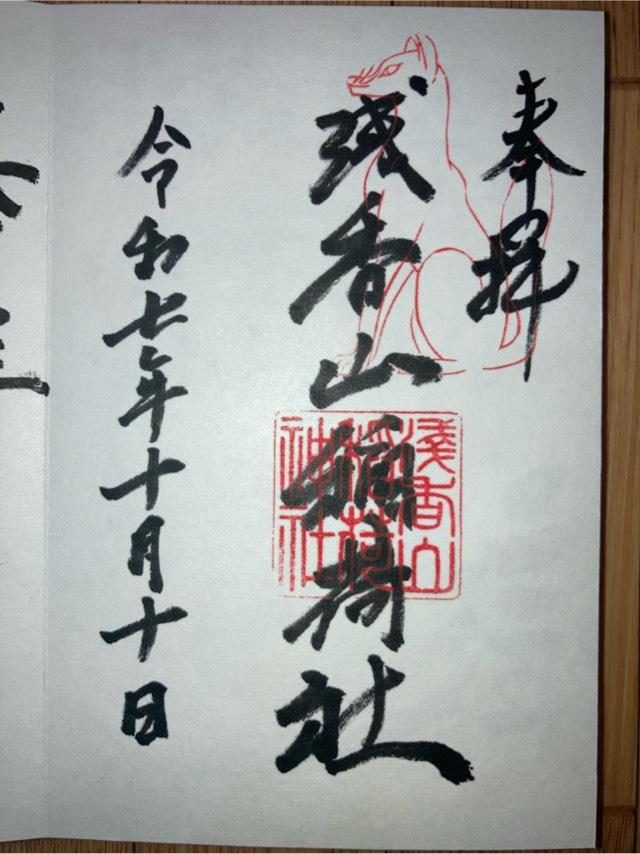 奉拝
浅香山稲荷社
淺香山
稲荷
神社
令和七年十月十日